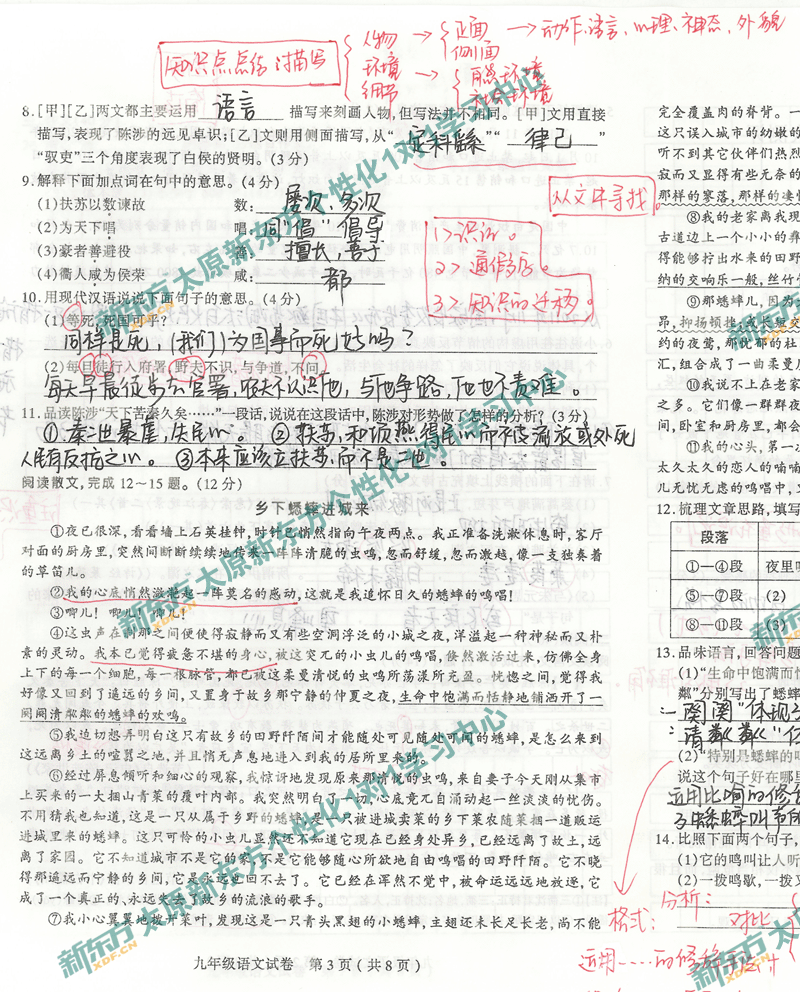 知识点总结:描写
人物 → 正面 → 动作、语言、心理、神态、外貌
侧面
环境 → 自然环境
社会环境
细节
8.[甲][乙]两文都主要运用 语言 描写来刻画人物,但写法并不相同。[甲]文用直接
描写,表现了陈涉的远见卓识;[乙]文则用侧面描写,从“ ”“ 律己 ”
“驭吏”三个角度表现了白侯的贤明。(3分)
9.解释下面加点词在句中的意思。(4分)
(1)扶苏以数谏故 数: 屡次,多次
(2)为天下唱 唱: 同“倡”倡导
(3)豪者善避役 善: 擅长,善于
(4)衢人咸为侯荣 咸: 都
从文中寻找。
1>识记。
2>通假字。
3>知识的迁移。
10.用现代汉语说说下面句子的意思。(4分)
(1)等死,死国可乎?
同样是死,(我们)为国事而死好吗?
(2)每旦徒行入府署,野夫不识,与争道,不问。
每天早晨徒步去官署,农夫不认识他,与他争路,他也不责难。
11.品读陈涉“天下苦秦久矣……”一段话,说说在这段话中,陈涉对形势做了怎样的分析?(3分)
①秦二世暴虐,失民心。②扶苏和项燕得民心而不被流放或处死
人民有反抗之心。③本来应该立扶苏而不是二世。
阅读散文,完成12~15题。(12分)
乡下蟋蟀进城来
①夜已很深,看看墙上石英挂钟,时针已悄然指向午夜两点。我正准备洗漱休息时,客厅
对面的厨房里,突然间断断续续地传来一阵阵清脆的虫鸣,忽而舒缓,忽而激越,像一支独奏着
的草笛儿。
②我的心底悄然激滟起一阵莫名的感动,这就是我追怀日久的蟋蟀的鸣唱!
③唧儿!唧儿!唧儿!
④这虫声在刹那之间便使得寂静而又有些空洞浮泛的小城之夜,洋溢起一种神秘而又朴
素的灵动。我本已觉得疲惫不堪的身心,被这突兀的小虫儿的鸣唱,倏然激活过来,仿佛全身
上下的每一个细胞,每一根脉管,都已被这柔曼清悦的虫鸣所荡漾所充盈。恍惚之间,觉得我
好像又回到了遥远的乡间,又置身于故乡那宁静的仲夏之夜,生命中饱满而恬静地铺洒开了一
阕阕清粼粼的蟋蟀的欢鸣。
⑤我迫切想弄明白这只有故乡的田野阡陌间才能随处可见随处可闻的蟋蟀,是怎么来到
这远离乡土的喧嚣之地,并且悄无声息地进入到我的居所里来的。
⑥经过屏息倾听和细心的观察,我惊讶地发现原来那清悦的虫鸣,来自妻子今天刚从集市
上买来的一大捆山青菜的覆叶内部。我突然明白了一切,心底竟兀自涌动起一丝淡淡的忧伤。
不用猜我也知道,这是一只从属于乡野的蟋蟀,是一只被进城卖菜的乡下菜农随菜捆一道贩运
进城里来的蟋蟀。这只可怜的小虫儿显然还不知道它现在已经身处异乡,已经远离了故土,远
离了家园。它不知道城市不是它的家,不是它能够随心所欲地自由鸣唱的田野阡陌。它不晓
得那遥远而宁静的乡间,它是永远也回不去了。它已经在浑然不觉中,被命运远远地放逐,它
成了一个真正的、永远失去了故乡的流浪的歌手。
⑦我小心翼翼地拨开菜叶,发现这是一只青头黑翅的小蟋蟀,主翅还未长足长老,尚不能
九年级语文试卷 第3页(共8页)
完全覆盖肉的脊背。一
这只误入城市的幼嫩的
听不到其它伙伴们热烈
寂而又显得有些无奈的
那样的寥落,那样的凄
⑧我的老家离我现
古道边上一个小小的彝
得能够拧出水来的田野
纳的交响乐一般,丝竹
⑨那蟋蟀儿,因为
昂,抑扬顿挫,或长短交
约的夜莺,那忧郁的杜
汇,组合成了一曲柔曼
⑩我说不上在老家
之多。它们像一群群夜
间,卧室和厨房里,都会
⑪我的心头,第一次
太久太久的恋人的喃喃
儿无忧无虑的鸣唱中,
12.梳理文章思路,填写
段落
①—④段 夜里听
⑤—⑦段 (2)
⑧—⑪段 (3)
13.品味语言,回答问题
(1)“生命中饱满而恬
粼”分别写出了蟋蟀
(2)“特别是蟋蟀的鸣
说这个句子好在哪里
运用比喻的修
14.比照下面两个句子,
(1)它的鸣叫让人听
(2)一拨鸣歇,一拨又
分析:
格式: 对比
运用……的修辞手法
新东方 XDF.CN
太原新东方个性化1对1学习中心